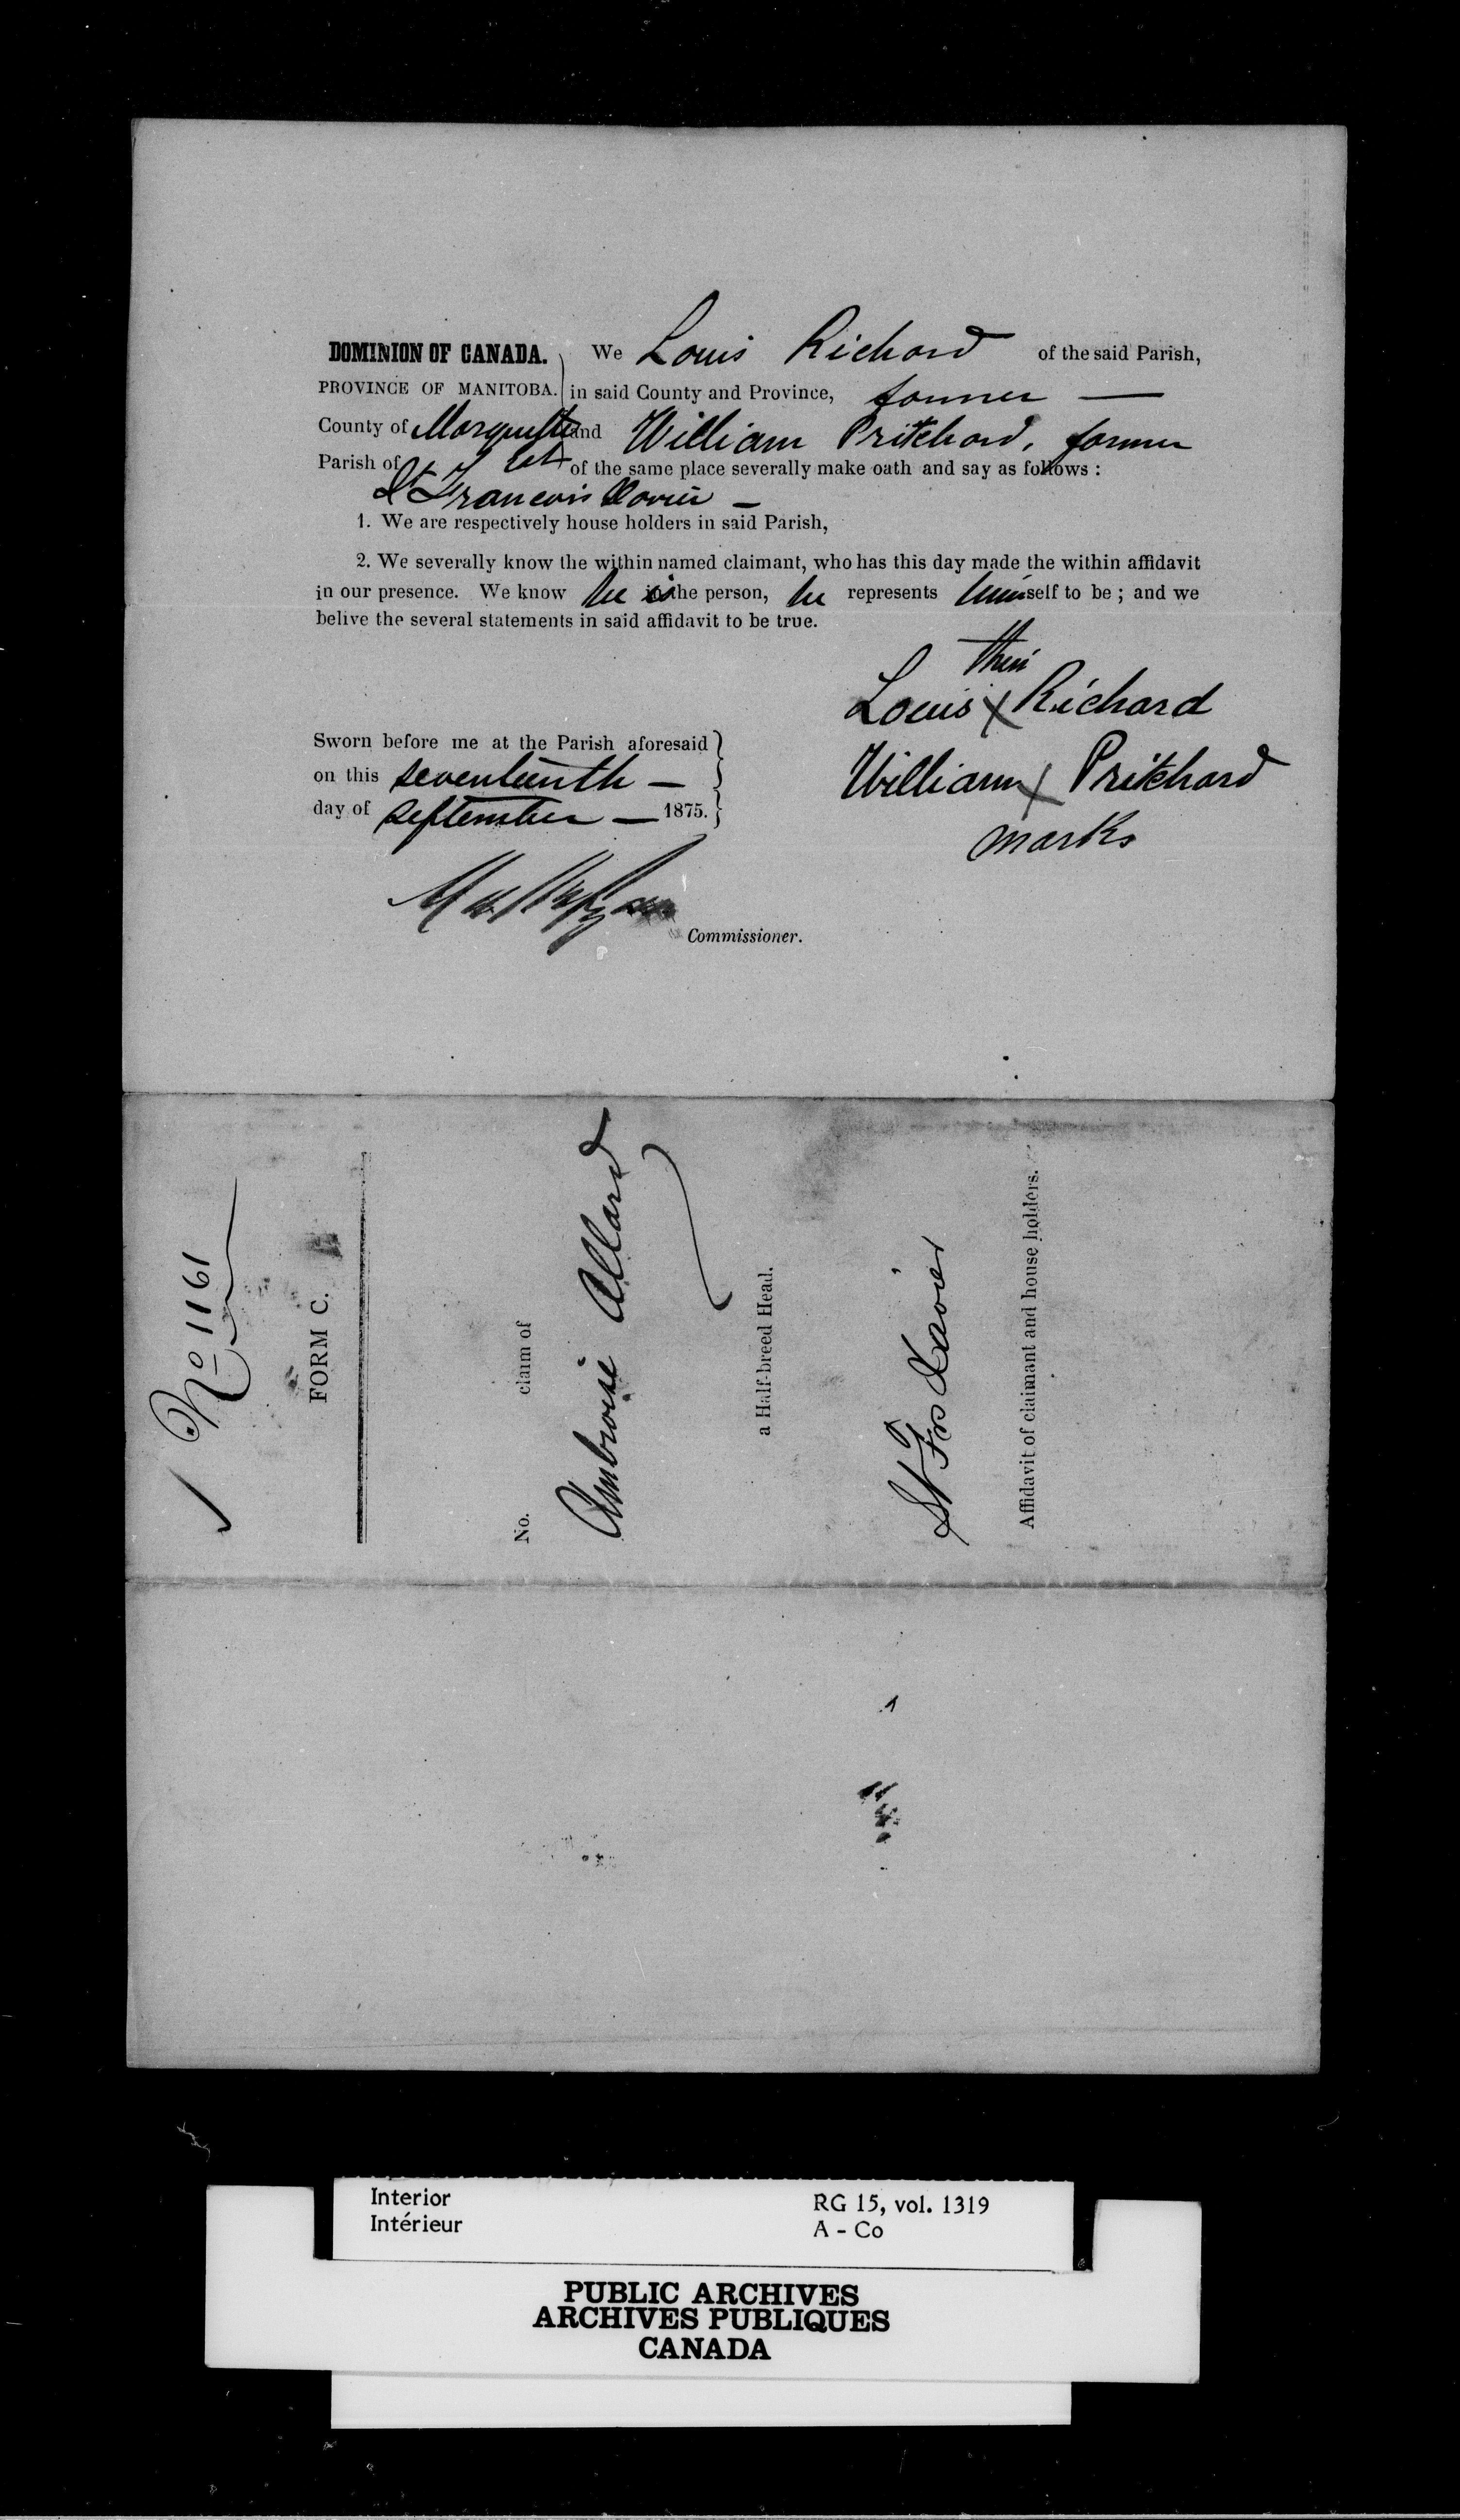 DOMINION OF CANADA. We Louis Richard of the said Parish,
PROVINCE OF MANITOBA. in said County and Province, farmer —
County of Marquette and William Pritchard, farmer
Parish of of the same place severally make oath and say as follows :
St Francois Xavier —
1. We are respectively house holders in said Parish,
2. We severally know the within named claimant, who has this day made the within affidavit
in our presence. We know he is the person, he represents himself to be ; and we
belive the several statements in said affidavit to be true.
their
Louis X Richard
Sworn before me at the Parish aforesaid
on this seventeenth —
William X Pritchard
day of September — 1875.
marks
Commissioner.
No 1161
FORM C.
No. claim of
Ambroise Allard
a Half-breed Head.
St Frs Xavier
Affidavit of claimant and house holders.
Interior RG 15, vol. 1319
Intérieur A - Co
PUBLIC ARCHIVES
ARCHIVES PUBLIQUES
CANADA